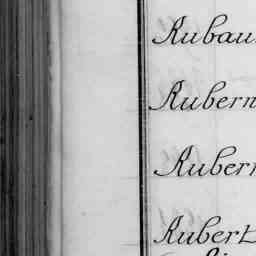 Aubau
Aubern
Auber
Aubert